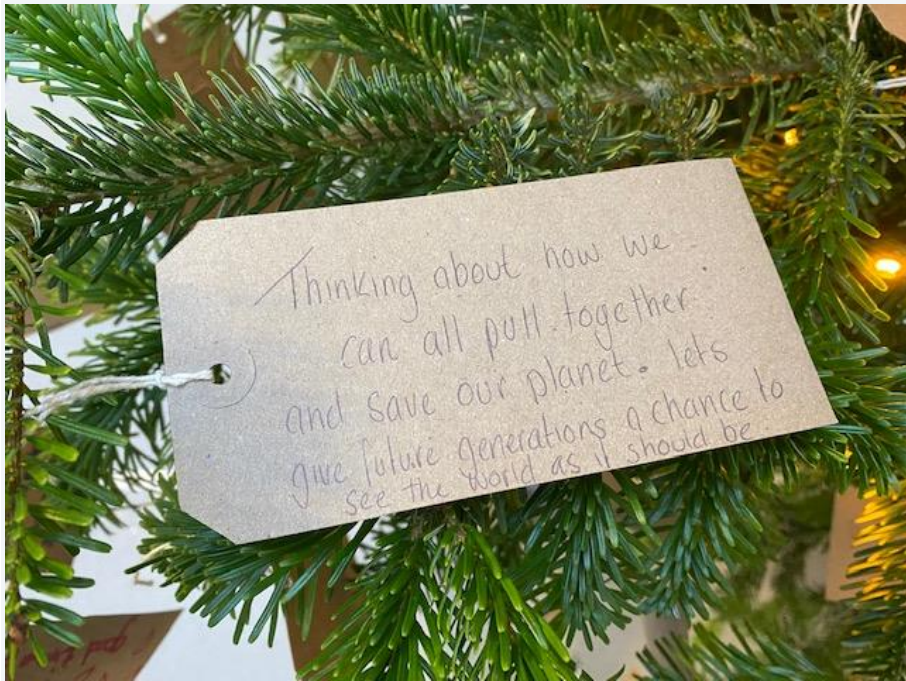 Thinking about how we
can all pull together
and save our planet. lets
give future generations a chance to
see the world as it should be.